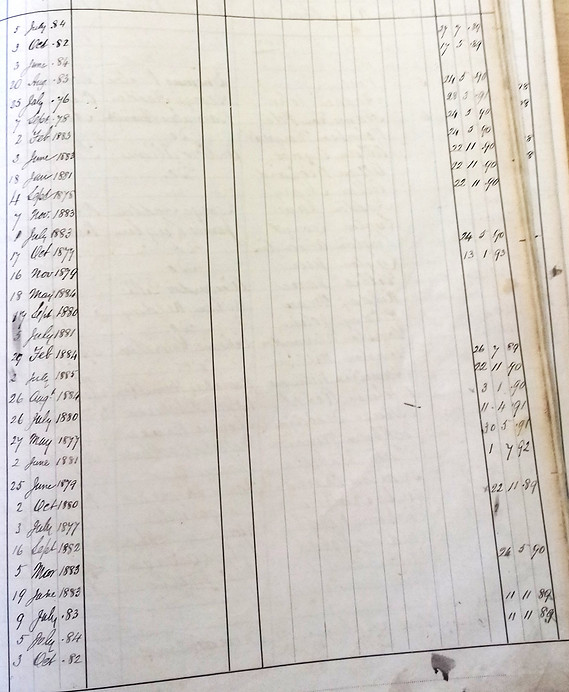 5 July .84 27 7 .89
3 Oct .82 17 5 .89
3 June .84
20 Aug .83 24 5 .90
25 July .76 28 3 .91
Sept .78 24 5 90
2 Feb 1883 24 5 90
3 June 1883 22 11 .90
18 Jan 1881 22 11 .90
4 Sept 1878 22 11 .90
7 Nov. 1883
July 1883 24 5 90
17 Oct 1877 13 1 93
16 Nov 1879
18 May 1884
Sept 1880
July 1881
29 Feb 1884 26 7 89
2 July 1885 22 11 .90
26 Augt 1884 3 1 .90
26 July 1880 11 . 4 .91
27 May 1877 30 5 .91
2 June 1881 1 7 92
25 June 1879 22 11 .89
2 Oct 1880
3 July 1877
16 Sept 1882 24 5 90
5 Mar 1883
19 June 1883 11 11 89
9 July .83 11 11 89
5 July .84
3 Oct .82